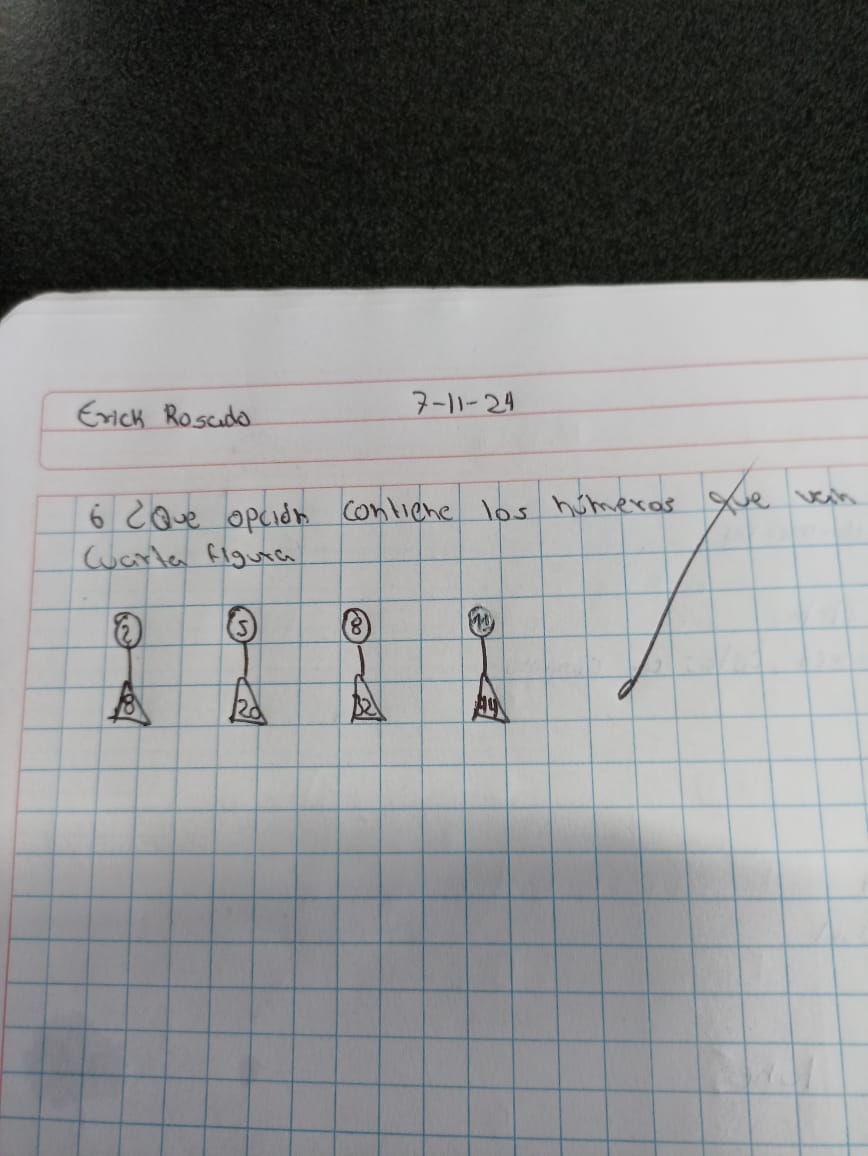 Erick Rosado 7-11-24
6 ¿Que opción contiene los números que van
Cuarta figura
2 5 8
8 20 32 44